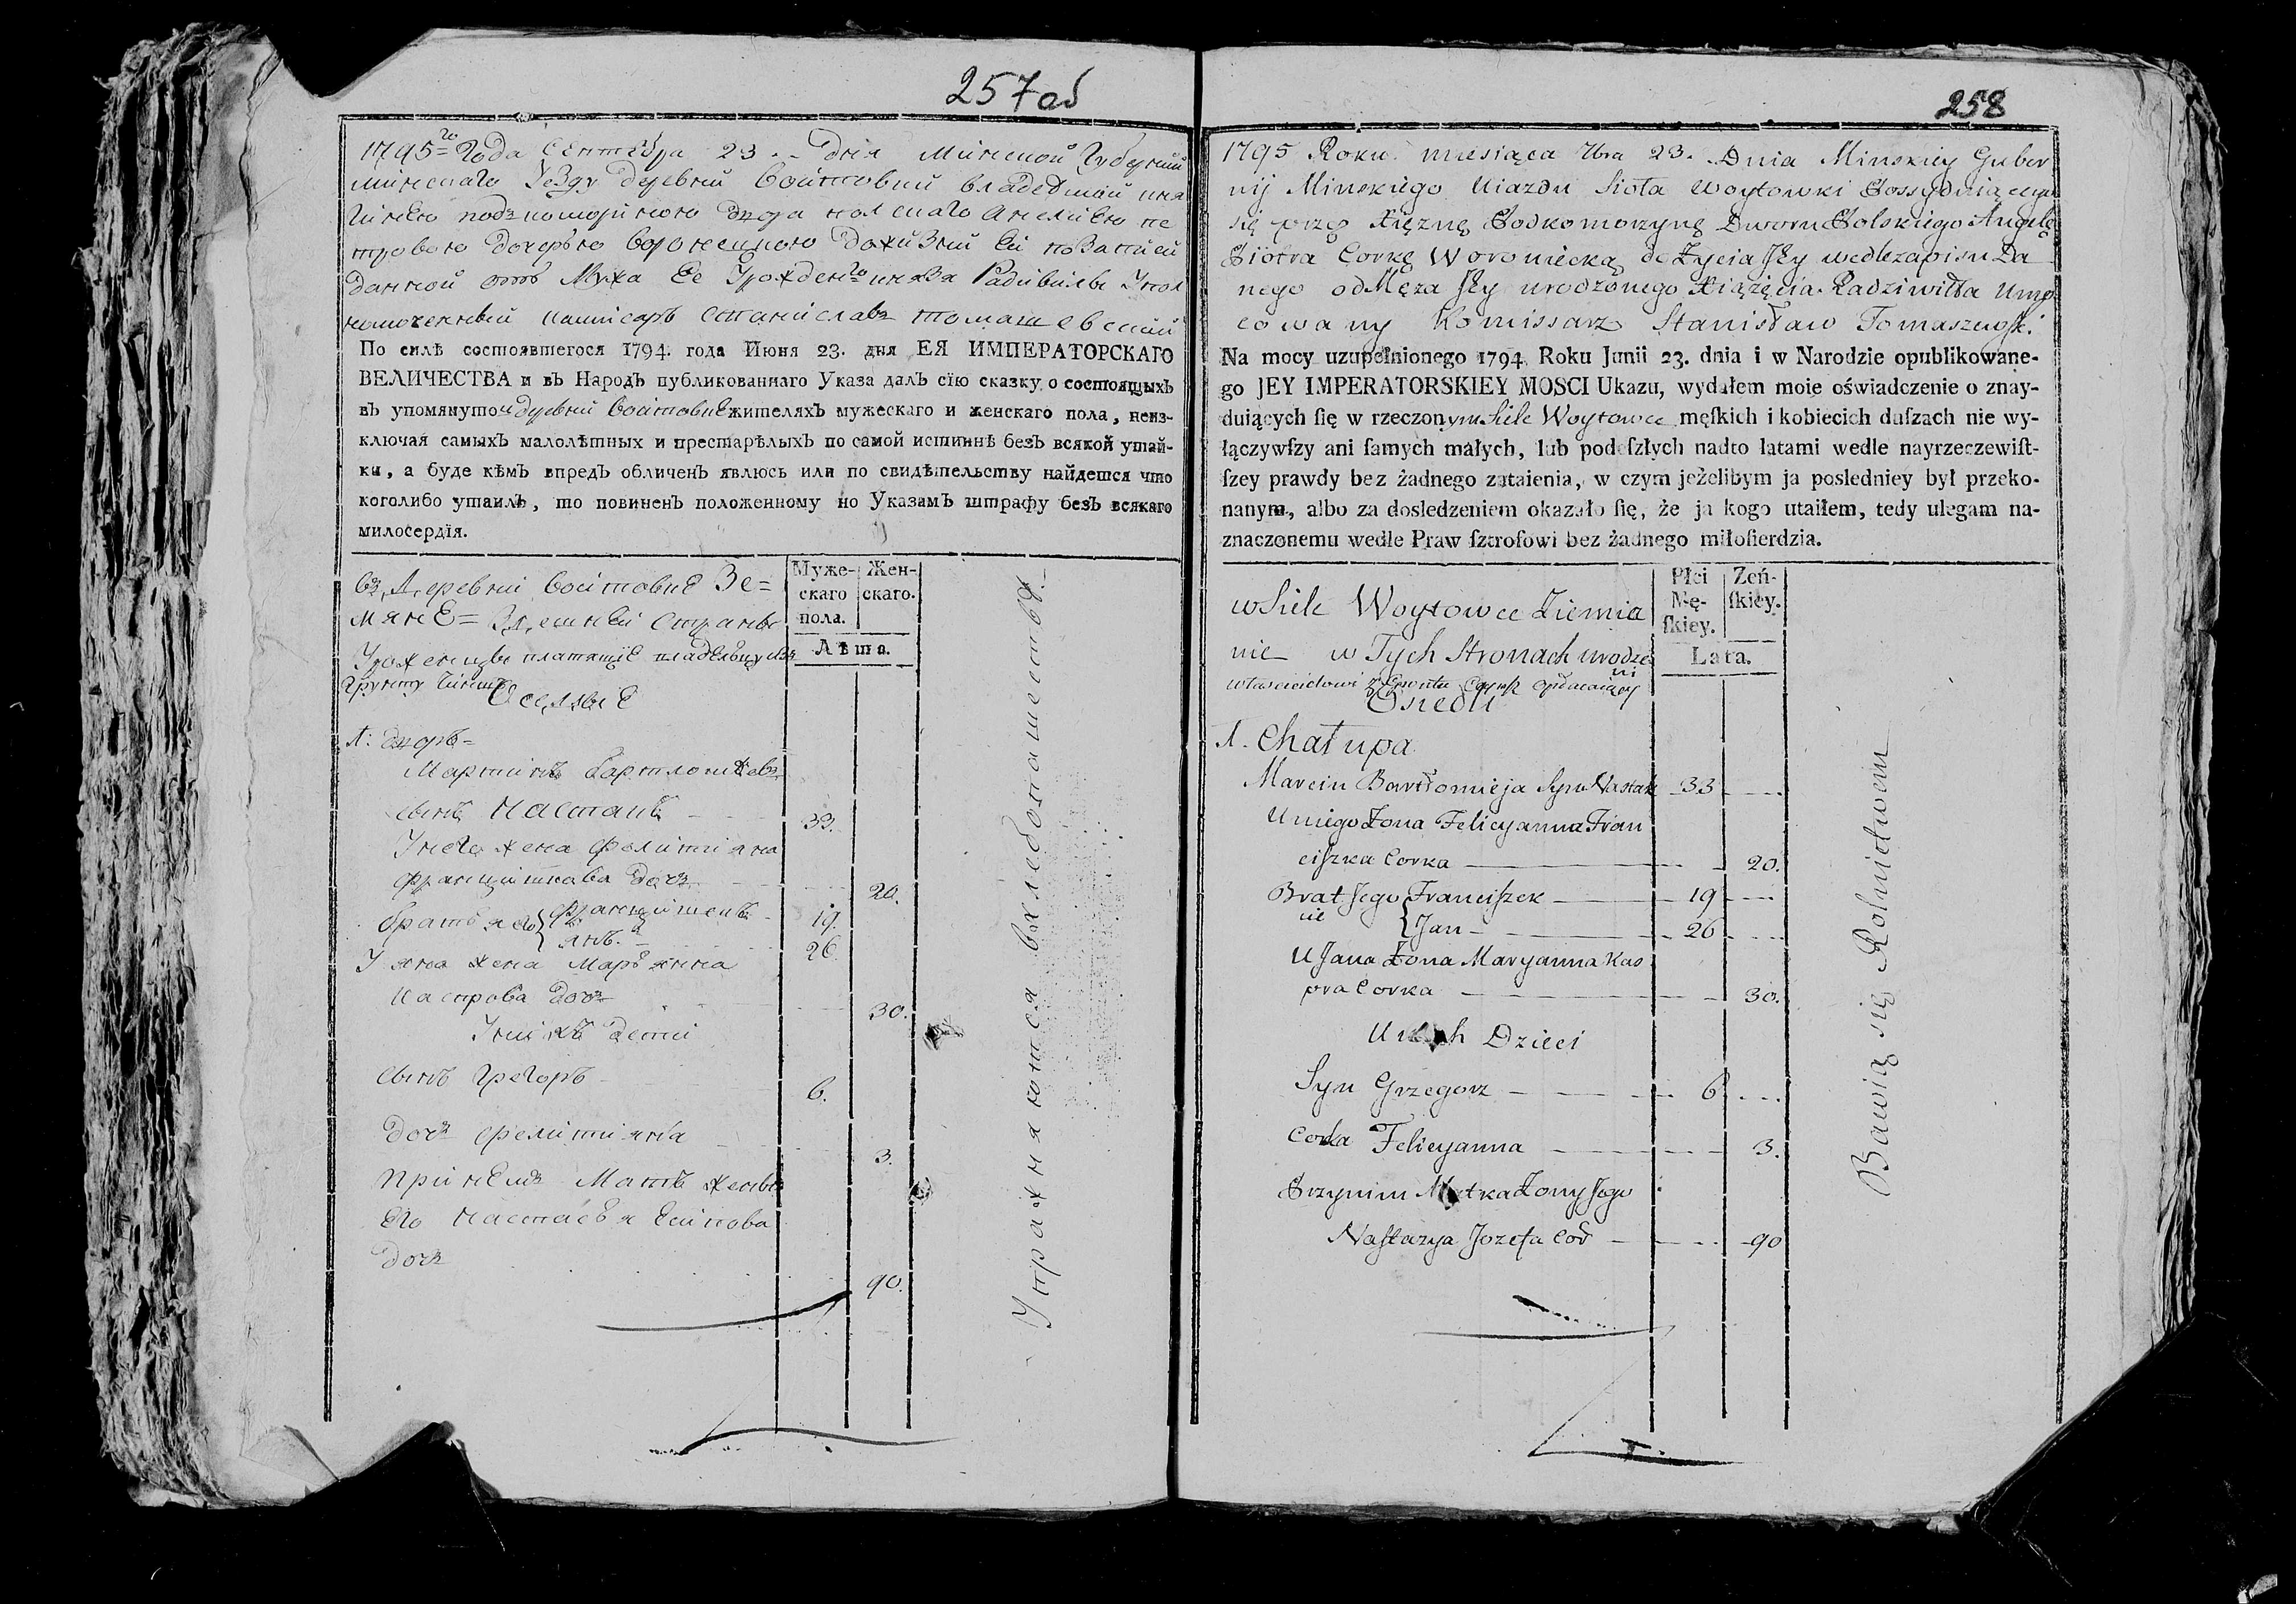 257об
1795го Года Сентебра 23 Дня Минской Губернии
Минскаго Уезду деревни Войтовки владеемой кня
гинею подкомориною двора полскаго Анелиею Пе
тровою дочерью Воронецкою
данной отъ Мужа Ее Урожденго князя Радивила Упол
номоченный комисаръ Станиславъ Томашевский
По силѣ состоявшегося 1794. года Июня 23. дня ЕЯ ИМПЕРАТОРСКАГО
ВЕЛИЧЕСТВА и въ Народъ публикованнаго Указа далъ сїю сказку о состоящыхъ
въ упомянутой деревни Войтовке жителяхъ мужескаго и женскаго пола, неиз-
ключая самыхъ малолѣтных и престарѣлыхъ по самой истиннѣ безъ всякой утай-
ки, а буде кѣмъ впредъ обличенъ явлюсь или по свидѣтельству найдется что
коголибо утаилъ, то повиненъ положенному по Указамъ штрафу безъ всякаго
милосердїя.
Муже-скаго пола. Жен-скаго.
Лѣта.
Въ Деревни Войтовке Зе=
мяне= Здешней Страны
Уроженцы платящие владельцу изъ
грунту чинш
Оседлые
1: дворъ=
Мартинъ Бартломеевъ
сынъ Настанъ 33.
У него жена Фелитияна
Францишкова дочъ 20.
братья его Францишекъ 19.
Янъ. 26.
У яна жена Марьянна
Каспрова дочъ 30.
У нихъ дети
сынъ Грегоръ 6.
дочъ Фелитияна 3.
При немъ Мать жены
Его Настасья Есипова
дочъ 90.
Упражняются въ хлебопашестве.
258
1795 Roku miesiąca 7bra 23. Dnia Minskiey Guber
nij Minskiego Uiazdu Sioła Woytowki Possydniącego
się przez Xiężnę Podkomorzynę Dworu Polskiego Angelę
Piotra Corkę Woroniecką do Życia Jey wedle zapisu Da
nego od Męża Jey urodzonego Xiążęcia Radziwiłła Ump
cowany Komissarz Stanisław Tomaszewski
Na mocy uzupełnionego 1794 Roku Junii 23. dnia i w Narodzie opublikowane-
go JEY IMPERATORSKIEY MOSCI Ukazu, wydałem moie oświadczenie o znay-
duiących ſię w rzeczonym Siele Woytowce męſkich i kobiecich duſzach nie wy-
łączywſzy ani ſamych małych, lub podeſzłych nadto latami wedle nayrzeczewiſt-
ſzey prawdy bez żadnego zataienia, w czym jeżelibym ja posledniey był przeko-
nanym, albo za dosledzeniem okazało ſię, że ja kogo utaiłem, tedy ulegam na-
znaczonemu wedle Praw ſztrofowi bez żadnego miłoſierdzia.
Płci Mę-ſkiey. Zeń-ſkiey.
Lata.
w Siele Woytowce Ziemia
nie w Tych Stronach urodze
ni
właścicielowi z Gruntu Czynsz opłacaiący
Osiedli
1. Chałupa
Marcin Bartłomieja Syn Nastan 33
U niego Żona Felicyanna Fran
ciſzka Corka 20.
Brat Jego Franciſzek 19
Jan 26
U Jana Żona Maryanna Kas
pra Corka 30.
U nich Dzieci
Syn Grzegorz 6
Corka Felicyanna 3.
Przynim Matka Żony Jego
Naſtazya Jozefa Cor 90
Bawią się Rolnictwem